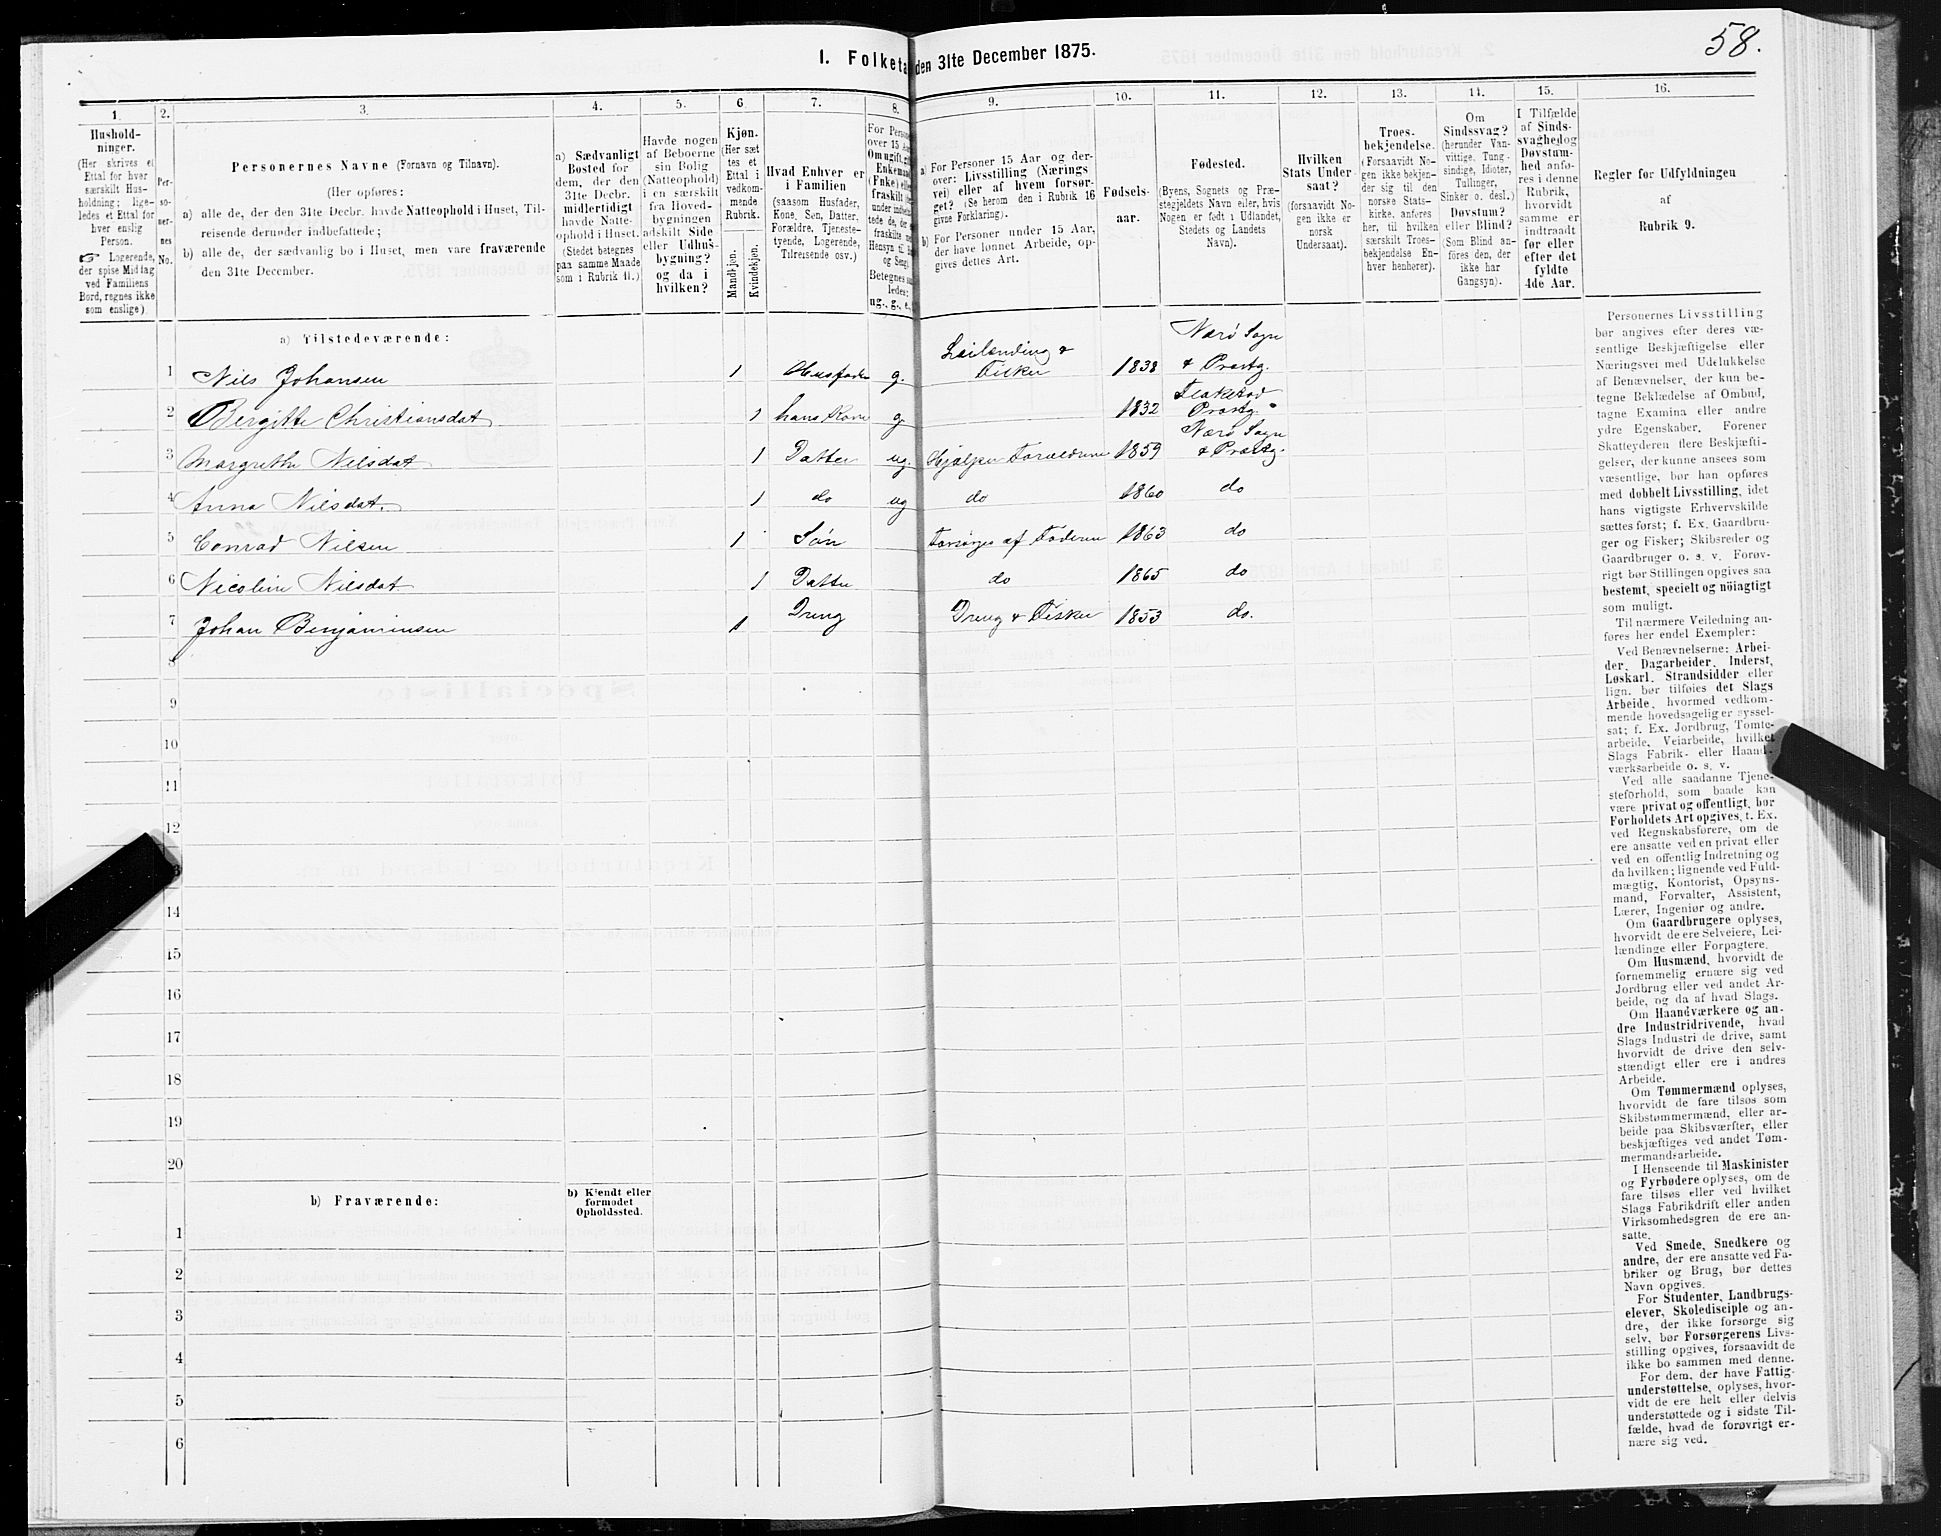 58.
1. Folketa den 31te December 1875.
1. 2. 3. 4. 5. 6. 7. 8. 9. 10. 11. 12. 13. 14. 15. 16.
Hushold-
ninger.
(Her skrives et
Ettal for hver
særskilt Hus-
holdning; lige-
ledes et Ettal for
hver enslig
Person.
☞ Logerende,
der spise Middag
ved Familiens
Bord, regnes ikke
som enslige)
Per-
so-
ner-
nes
No.
Personernes Navne (Fornavn og Tilnavn).
(Her opføres:
a) alle de, der den 31te Decbr. havde Natteophold i Huset, Til-
reisende derunder indbefattede;
b) alle de, der sædvanlig bo i Huset, men vare fraværende
den 31te December.
a) Sædvanligt
Bosted for
dem, der den
31te Decbr.
midlertidigt
havde Natte-
ophold i Huset.
(Stedet betegnes
paa samme Maade
som i Rubrik 11.)
Havde nogen
af Beboerne
sin Bolig
(Natteophold)
i en særskilt
fra Hoved-
bygningen
adskilt Side
eller Udhus-
bygning?
og da i
hvilken?
Kjøn.
(Her sæt
tes et
Ettal i
vedkom-
mende
Rubrik.
Mandkjøn.
Kvindekjøn.
Hvad Enhver er
i Familien
(saasom Husfader,
Kone, Søn, Datter,
Forældre, Tjeneste-
tyende, Logerende,
Tilreisende osv.)
For Perso
over 15 Aa
Om ugift, gi
Enkemand
(Enke) elle
fraskilt
Betegnes s
ledes:
ug., g., e.
a) For Personer 15 Aar og der-
over: Livsstilling (Nærings
vei) eller af hvem forsør-
get? (Se herom den i Rubrik 16
givne Forklaring).
b) For Personer under 15 Aar,
der have lønnet Arbeide, op-
gives dettes Art.
Fødsels-
aar.
Fødested.
(Byens, Sognets og Præ-
stegjeldets Navn eller, hvis
Nogen er født i Udlandet,
Stedets og Landets
Navn).
Hvilken
Stats Under
saat?
(forsaavidt No-
gen ikke er
norsk
Undersaat).
Troes-
bekjendelse.
(Forsaavidt No-
gen ikke bekjen-
der sig til den
norske Stats-
kirke, anføres
her, til hvilken
særskilt Troes-
bekjendelse En-
hver henhører).
Om
Sindssvag?
(herunder Van-
vittige, Tung-
sindige, Idioter,
Tullinger,
Sinker o. desl.)
Døvstum?
eller Blind?
(Som Blind an-
føres den, der
ikke har
Gangsyn).
I Tilfælde
af Sinds-
svaghed og
Døvstum-
hed anfø-
res i denne
Rubrik,
hvorvidt
samme er
indtraadt
før eller
efter det
fyldte
4de Aar.
Regler for Udfyldningen
af
Rubrik 9.
a) Tilstedeværende:
1 Nils Johansen 1 Husfader g. Leilending & Fisker 1838 Nærø Sogn & Præstg.
2 Bergitte Christiansdat 1 hans Kone g 1832 Præstg.
3 Margrethe Nilsdat 1 Datter ug. Hjælper Forældrene 1859 Nærø Sogn & Præstg.
4 Anna Nilsdat. 1 do ug do 1860 do
5 Conrad Nilsen 1 Søn Forsørges af Faderen 1863 do
6 Nicoline Nilsdat 1 Datter do 1865 do
7 Johan Benjaminsen 1 Dreng Dreng & Fisker 1853 do.
8
9
10
11
12
14
15
16
17
18
19
20
b) Fraværende:
b) Kjendt eller
formodet
Opholdssted.
1
2
3
4
5
6
Personernes Livsstilling
bør angives efter deres væ-
sentlige Beskjæftigelse eller
Næringsvei med Udelukkelse
af Benævnelser, der kun be-
tegne Beklædelse af Ombud,
tagne Examina eller andre
ydre Egenskaber. Forener
Skatteyderen flere Beskjæfti-
gelser, der kunne ansees som
væsentlige, bør han opføres
med dobbelt Livsstilling, idet
hans vigtigste Erhvervskilde
sættes først; f. Ex. Gaardbru-
ger og Fisker; Skibsreder og
Gaardbruger o. s. v. Forøv-
rigt bør Stillingen opgives saa
bestemt, specielt og nöiagtigt
som muligt.
Til nærmere Veiledning an-
føres her endel Exempler:
Ved Benævnelserne: Arbei-
der, Dagarbeider, Inderst,
Løskarl, Strandsidder eller
lign. bør tilføies det Slags
Arbeide, hvormed vedkom-
mende hovedsagelig er syssel-
sat; f. Ex. Jordbrug, Tomte-
arbeide, Veiarbeide, hvilket
Slags Fabrik- eller Haand-
værksarbeide o. s. v.
Ved alle saadanne Tjene-
steforhold, som baade kan
være privat og offentligt, bør
Forholdets Art opgives, f. Ex.
ved Regnskabsførere, om de
ere ansatte ved en privat eller
ved en offentlig Indretning og
da hvilken; lignende ved Fuld-
mægtig, Kontorist, Opsyns-
mand, Forvalter, Assistent,
Lærer, Ingeniør og andre.
Om Gaardbrugere oplyses,
hvorvidt de ere Selveiere, Lei-
lændinge eller Forpagtere.
Om Husmænd, hvorvidt de
fornemmelig ernære sig ved
Jordbrug eller ved andet Ar-
beide, og da af hvad Slags.
Om Haandværkere og an-
dre Industridrivende, hvad
Slags Industri de drive, samt
hvorvidt de drive den selv-
stændigt eller ere i andres
Arbeide.
Om Tømmermænd oplyses,
hvorvidt de fare tilsøs som
Skibstømmermænd, eller ar-
beide paa Skibsværfter, eller
beskjæftiges ved andet Tøm-
mermandsarbeide.
I Henseende til Maskinister
og Fyrbødere oplyses, om de
fare tilsøs eller ved hvilket
Slags Fabrikdrift eller anden
Virksomhedsgren de ere an-
satte.
Ved Smede, Snedkere og
andre, der ere ansatte ved Fa-
briker og Brug, bør dettes
Navn opgives.
For Studenter, Landbrugs-
elever, Skoledisciple og an-
dre, der ikke forsørge sig
selv, bør Forsørgerens Livs-
stilling opgives, forsaavidt de
ikke bo sammen med denne.
For dem, der have Fattig-
understøttelse, oplyses, hvor-
vidt de ere helt eller delvis
understøttede og i sidste Til-
fælde, hvad de forøvrigt er-
nære sig ved.